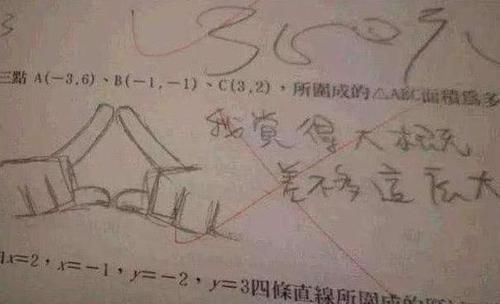 3
三點 A(-3,6)、B(-1,-1)、C(3,2),所圍成的△ABC面積為多
我覺得大概
差不多這麼大
x=2,x=-1,y=-2,y=3四條直線所圍成的